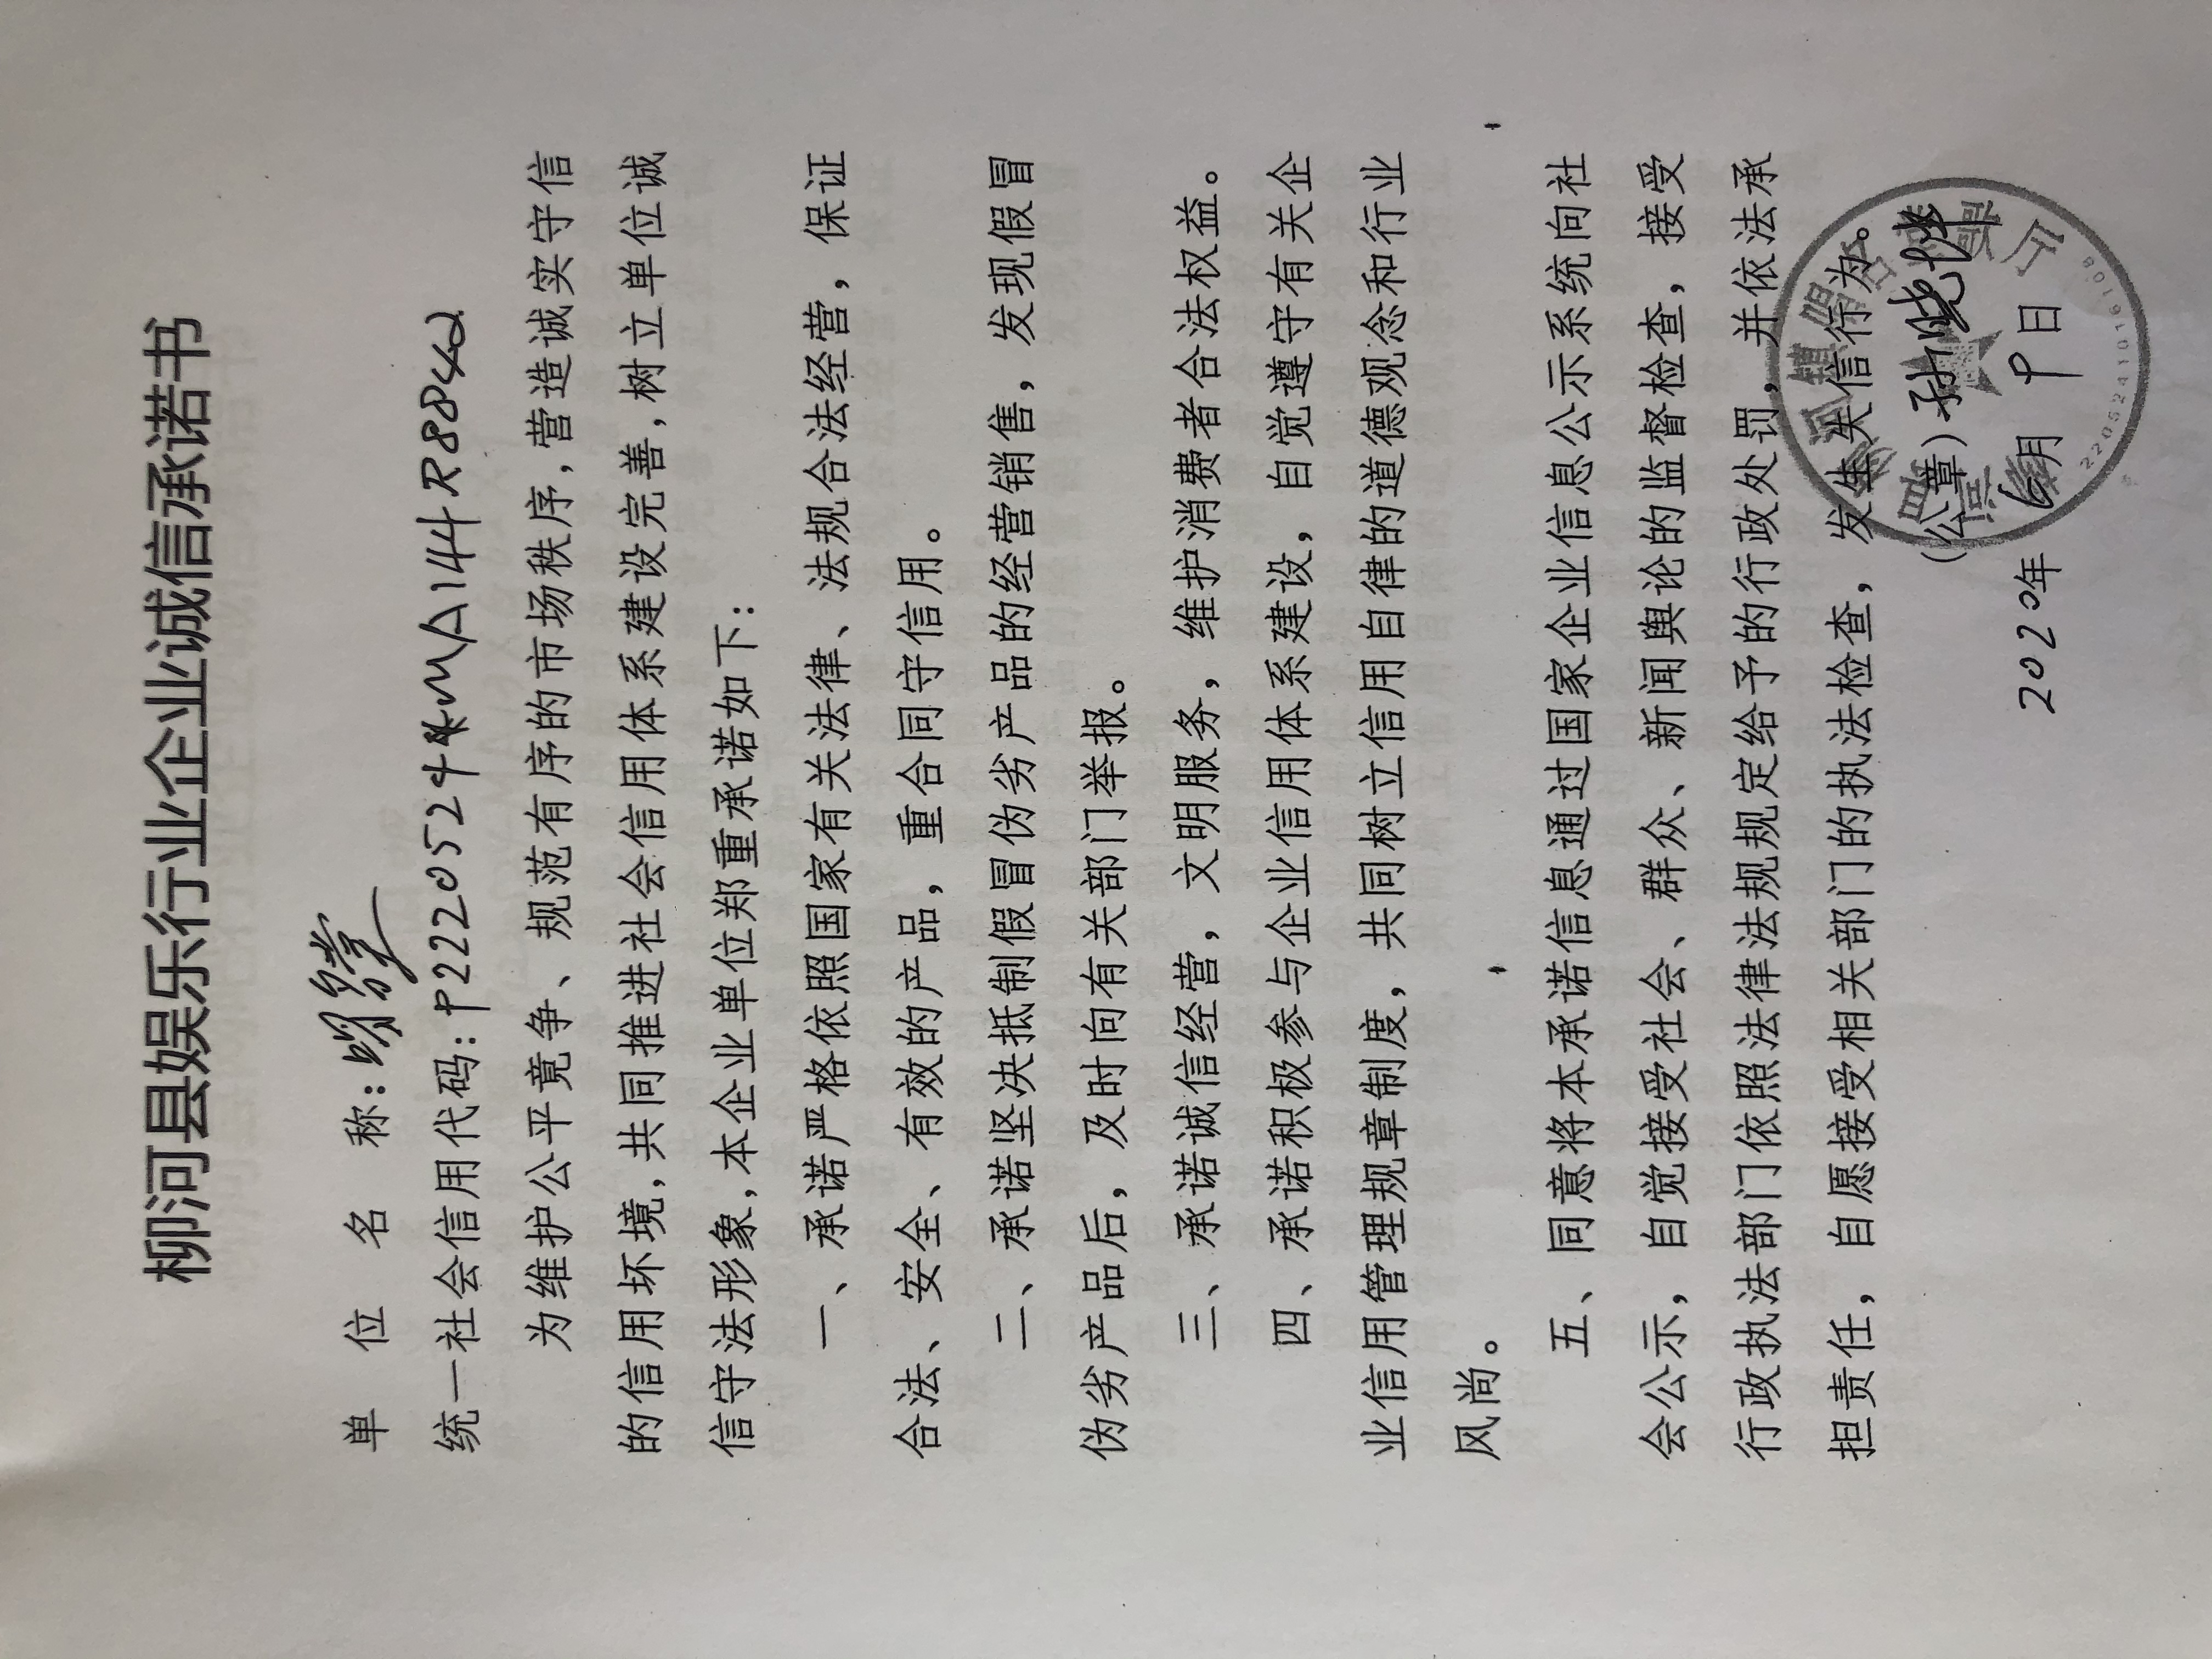 柳河县娱乐行业企业诚信承诺书
单 位 名 称:
统一社会信用代码:92220524MA144R8842
为维护公平竟争、规范有序的市场秩序,营造诚实守信
的信用坏境,共同推进社会信用体系建设完善,树立单位诚
信守法形象,本企业单位郑重承诺如下:
一、承诺严格依照国家有关法律、法规合法经营,保证
合法、安全、有效的产品,重合同守信用。
二、承诺坚决抵制假冒伪劣产品的经营销售,发现假冒
伪劣产品后,及时向有关部门举报。
三、承诺诚信经营,文明服务,维护消费者合法权益。
四、承诺积极参与企业信用体系建设,自觉遵守有关企
业信用管理规章制度,共同树立信用自律的道德观念和行业
风尚。
五、同意将本承诺信息通过国家企业信息公示系统向社
会公示,自觉接受社会、群众、新闻舆论的监督检查,接受
行政执法部门依照法律法规规定给予的行政处罚,并依法承
担责任,自愿接受相关部门的执法检查,发生失信行为。
(公章)孙晓
2020年6月9日
2205241016108